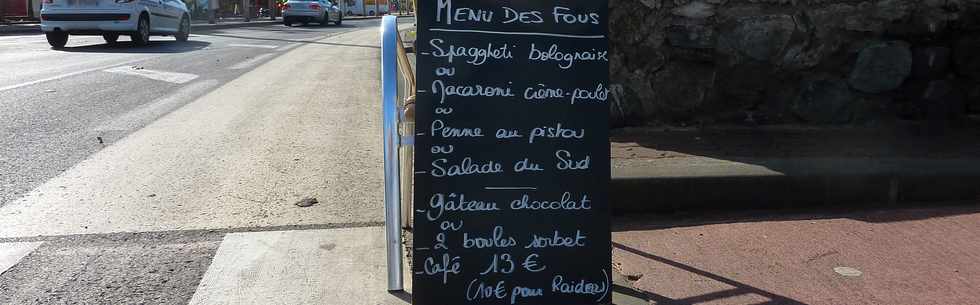 MENU DES FOUS
- Spaggheti bolognaise
ou
- Macaroni crème-poulet
ou
- Penne au pistou
ou
- Salade du Sud
- gâteau chocolat
ou
- 2 boules sorbet
- Café 13 €
(10€ pour Raideur)